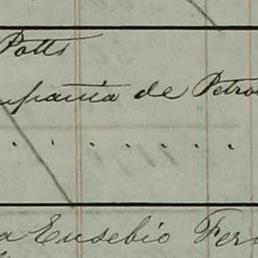 Potts
mpañia de Petro
. . . . . . . .
a Eusebio Fer